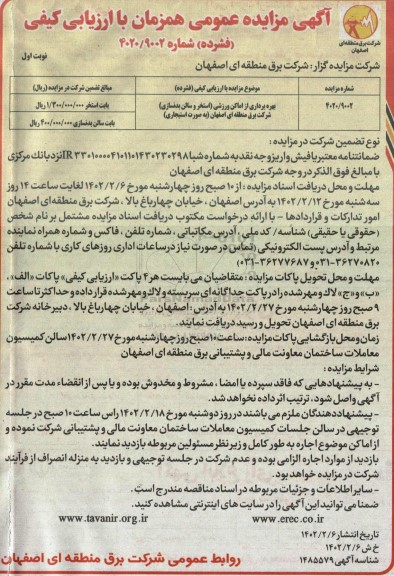 آگهی مزایده عمومی همزمان با ارزیابی کیفی
(فشرده) شماره ۴۰۲۰/۹۰۰۲
شرکت برق منطقه ای
اصفهان
نوبت اول
شرکت مزایده گزار: شرکت برق منطقه ای اصفهان
شماره مزایده
موضوع مزایده با ارزیابی کیفی (فشرده)
مبالغ تضمین شرکت در مزایده (ریال)
۴۰۲۰/۹۰۰۲
بهره برداری از اماکن ورزشی (استخر و سالن بدنسازی)
شرکت برق منطقه ای اصفهان (به صورت استیجاری)
بابت استخر ۱/۳۰۰/۰۰۰/۰۰۰ ریال
بابت سالن بدنسازی ۴۰۰/۰۰۰/۰۰۰ ریال
نوع تضمین شرکت در مزایده:
ضمانتنامه معتبر یا فیش واریز وجه نقد به شماره شبا IR۳۳۰۱۰۰۰۰۴۱۰۱۱۰۱۴۳۰۲۳۰۲۹۸ نزد بانک مرکزی
با مبالغ فوق الذکر در وجه شرکت برق منطقه ای اصفهان
مهلت و محل دریافت اسناد مزایده: از ۱۰ صبح روز چهارشنبه مورخ ۱۴۰۲/۲/۶ لغایت ساعت ۱۴ روز
سه شنبه مورخ ۱۴۰۲/۲/۱۲ به آدرس اصفهان ، خیابان چهارباغ بالا ، شرکت برق منطقه ای اصفهان
امور تدارکات و قراردادها – با ارائه درخواست مکتوب دریافت اسناد مزایده مشتمل بر نام شخص
(حقوقی یا حقیقی) شناسه/ کد ملی ، آدرس مکاتباتی ، شماره تلفن ، فاکس و شماره همراه نماینده
مرتبط و آدرس پست الکترونیکی (تماس در صورت نیاز در ساعات اداری روزهای کاری با شماره تلفن
۳۶۲۷۰۸۲۰-۰۳۱ و ۳۶۲۷۷۶۸۷-۰۳۱)
مهلت و محل تحویل پاکات مزایده: متقاضیان می بایست هر ۴ پاکت «ارزیابی کیفی» پاکات «الف»،
«ب» و «ج» لاک و مهر شده را در پاکت جداگانه ای سربسته و لاک و مهر شده قرار داده و حداکثر تا ساعت
۹ صبح روز چهارشنبه مورخ ۱۴۰۲/۲/۲۷ به آدرس: اصفهان ، خیابان چهارباغ بالا ، دبیرخانه شرکت
برق منطقه ای اصفهان تحویل و رسید دریافت نمایند.
زمان و محل بازگشایی پاکات مزایده: ساعت ۱۰ صبح روز چهارشنبه مورخ ۱۴۰۲/۲/۲۷ سالن کمیسیون
معاملات ساختمان معاونت مالی و پشتیبانی برق منطقه ای اصفهان
شرایط مزایده:
– به پیشنهادهایی که فاقد سپرده یا امضا ، مشروط و مخدوش بوده و یا پس از انقضاء مدت مقرر در
آگهی واصل شود، ترتیب اثر داده نخواهد شد.
– پیشنهاددهندگان ملزم می باشند در روز دوشنبه مورخ ۱۴۰۲/۲/۱۸ راس ساعت ۱۰ صبح در جلسه
توجیهی در سالن جلسات کمیسیون معاملات ساختمان معاونت مالی و پشتیبانی شرکت نموده و
از اماکن موضوع اجاره به طور کامل و زیر نظر مسئولین مربوطه بازدید نمایند.
بازدید از موارد اجاره الزامی بوده و عدم شرکت در جلسه توجیهی و بازدید به منزله انصراف از فرآیند
شرکت در مزایده خواهد بود.
– سایر اطلاعات و جزئیات مربوطه در اسناد مناقصه مندرج است.
ضمنا می توانید این آگهی را در سایت های اینترنتی مشاهده کنید.
www.erec.co.ir
www.tavanir.org.ir
تاریخ انتشار ۱۴۰۲/۲/۶
خ ش ۱۴۰۲/۲/۶
شناسه آگهی ۱۴۸۵۵۷۹
روابط عمومی شرکت برق منطقه ای اصفهان